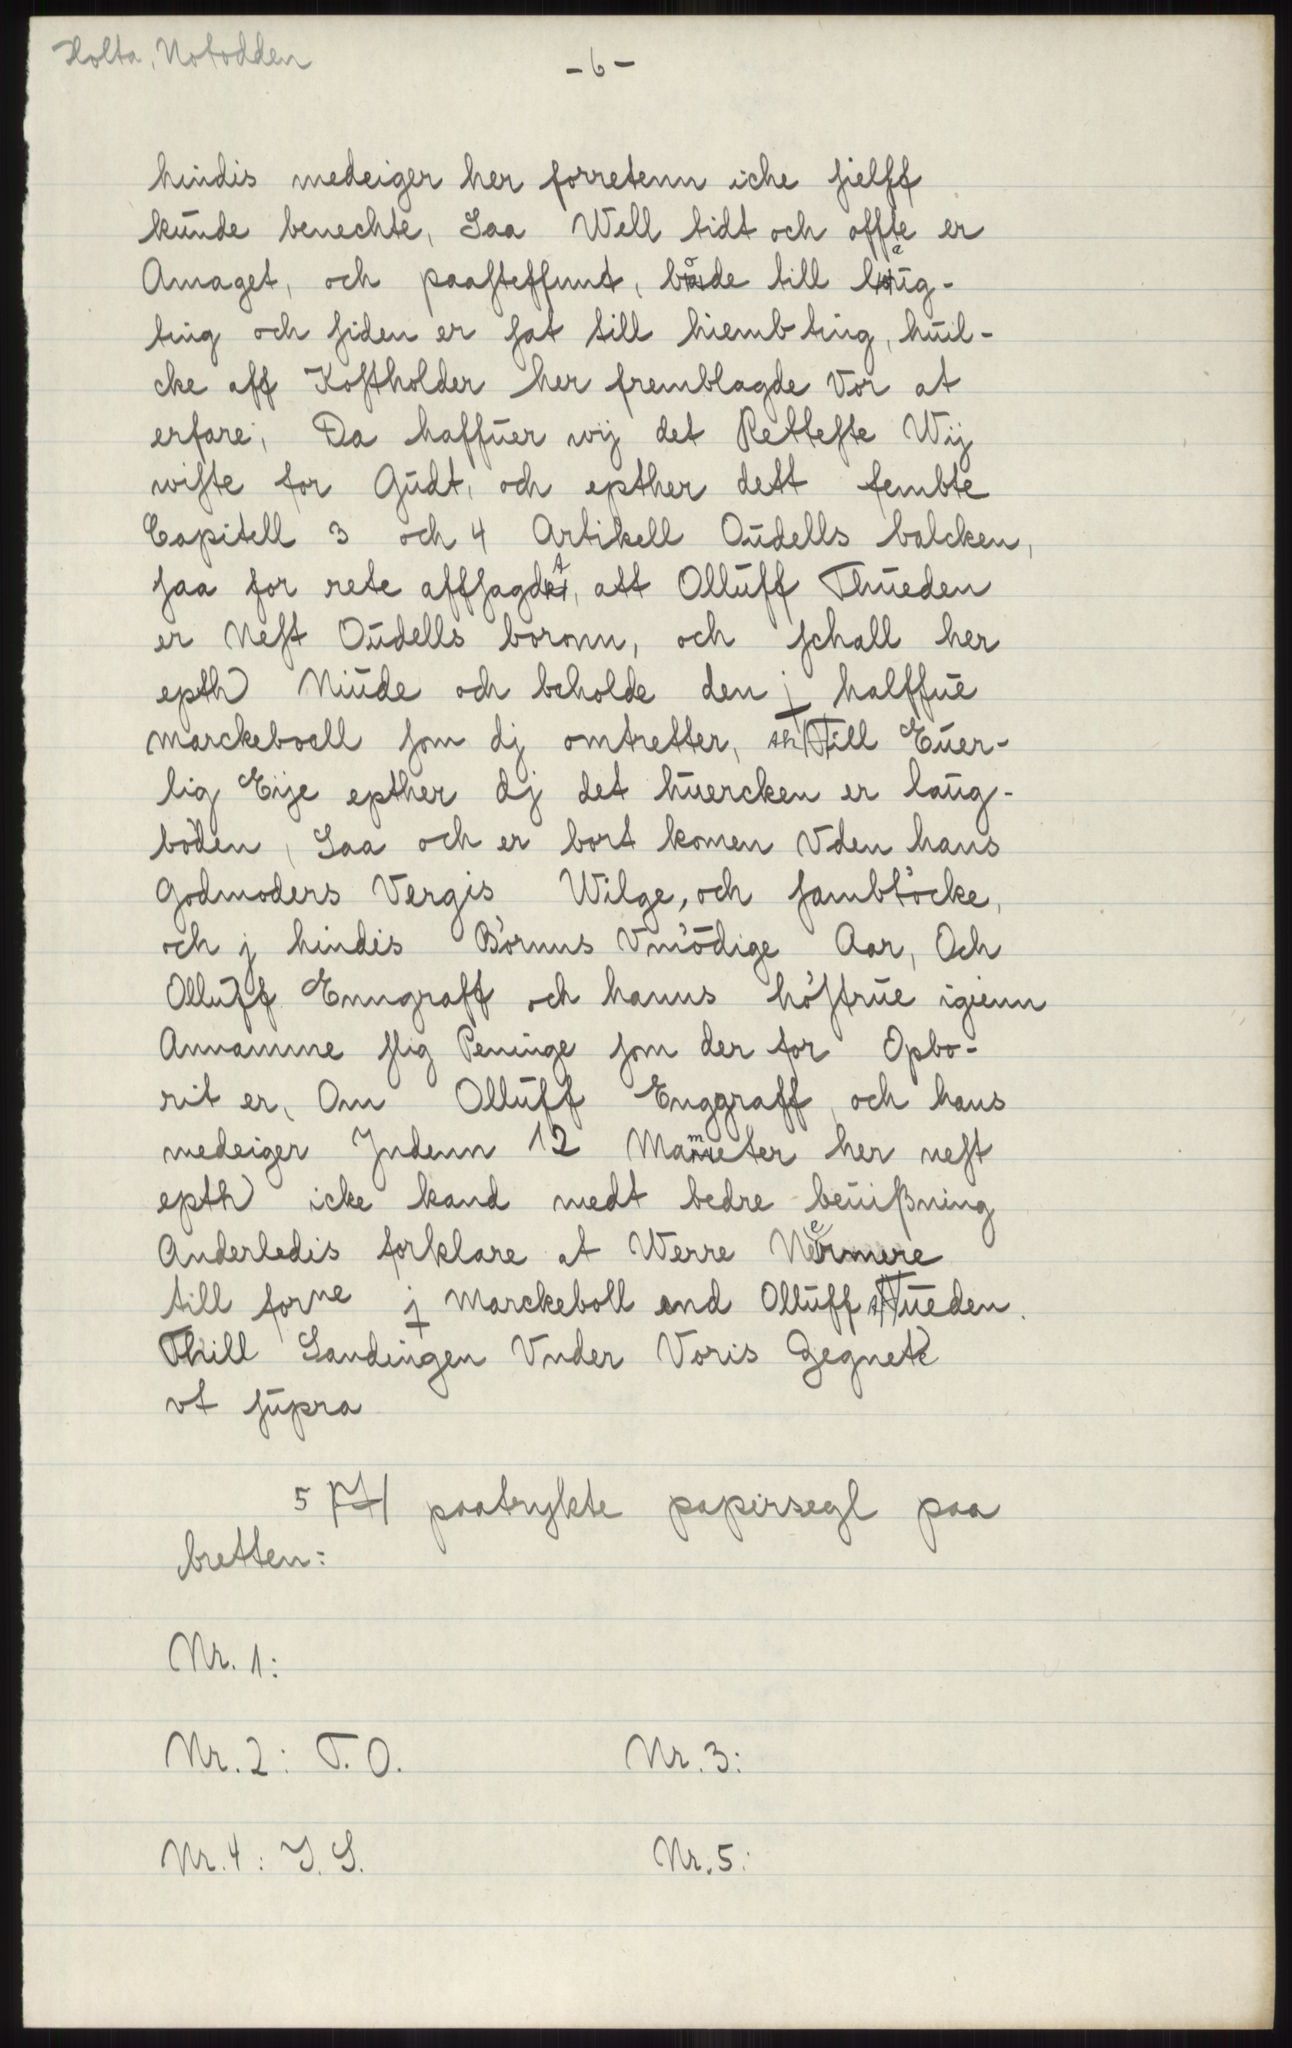 Holta, Notodden
- 6 -
hindis medeiger her forretenn iche sielff
kunde benechte, Saa Well tidt och offte er
Amaget, och paasteffunt, både till laug-
ting och siden er sat till hiembting, huil-
cke aff Kostholder her fremblagde Vor at
erfare, Da haffuer wij det Retteste Wij
wiste for Gudt, och epther dett fembte
Capitell 3 och 4 Artikell Oudells balcken,
saa for rete affsagdt, att Olluff Thueden
er Nest Oudells boronn, och schall her
epth Niude och beholde den j halffue
marckeboell som dj omtretter, Till Euer-
lig Eije epther dj det huercken er laug-
böden, Saa och er bort komen Vden hans
Godmoders Vergis Wilge, och sambtöcke,
och j hindis Börnns Vmödige Aar, Och
Olluff Enngraff och hanns höstrue igienn
Annamme slig Peninge som der for Opbo-
rit er, Om Olluff Enggraff, och hans
medeiger Jndenn 12 Mameter her nest
epth icke kand medt bedre beuißning
Anderledis forklare at Werre Nermere
till forne j Marckeboll end Olluff Tueden.
Thill Landingen Vnder Voris Zegnete
vt supra
5 paatrykte papirsegl paa
bretten:
Nr. 1:
Nr. 2: T. O. Nr. 3:
Nr. 4: J. S. Nr. 5: